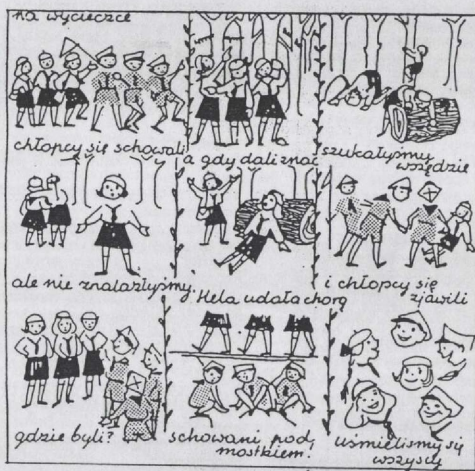 na wycieczce
chłopcy się schowali
a gdy dali znać
szukałyśmy
wszędzie
ale nie znalazłyśmy.
Hela udała chorą
i chłopcy się
zjawili
gdzie byli?
schowani pod
mostkiem.
uśmieliśmy się
wszyscy